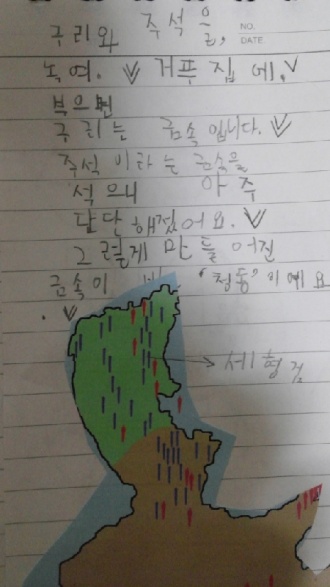 구리와 주석을,
NO.
DATE.
녹여. 거푸집에.
부으면
구리는 금속입니다.
주석이라는 금속을
석으니 아주
단단해졌어요.
그럴게 만들어진
금속이 "청동"이에요
.
세형검